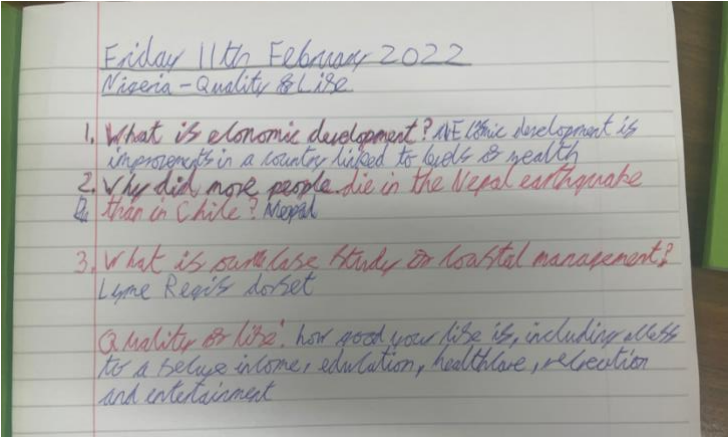 Friday 11th February 2022
Nigeria - Quality of Life
1. What is economic development? economic development is
improvements in a country linked to levels of wealth
2. Why did more people die in the Nepal earthquake
than in Chile? Nepal
3. What is our case study of coastal management?
Lyme Regis dorset
Quality of life: how good your life is, including access
to a secure income, education, healthcare, recreation
and entertainment